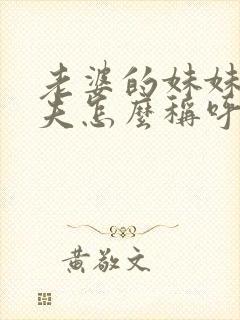 老婆的妹妹
夫怎麼稱呼
黃敬文